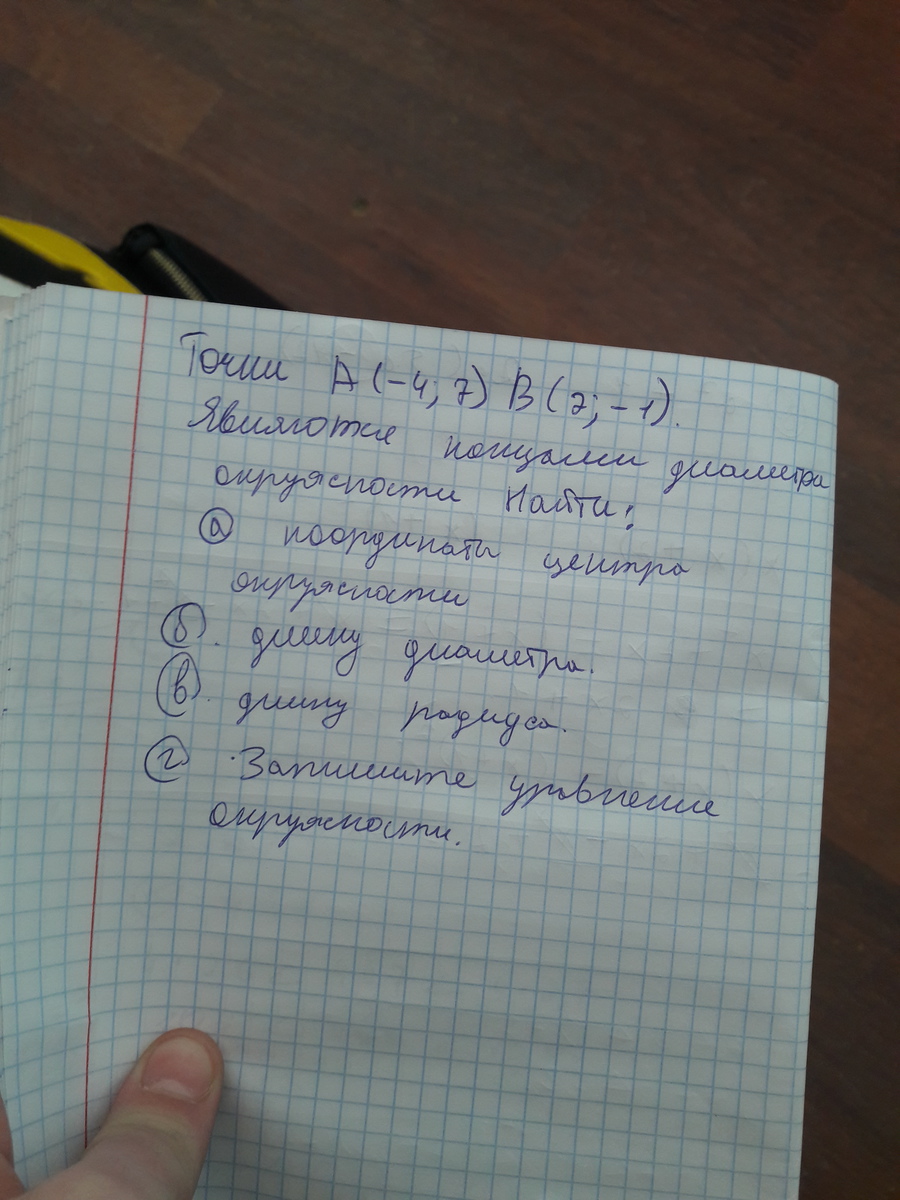 Точки А (-4; 7) В (2; -1).
Являются концами диаметра
окружности Найти:
а координаты центра
окружности
б. длину диаметра.
в. длину радиуса.
г Запишите уровнение
окружности.